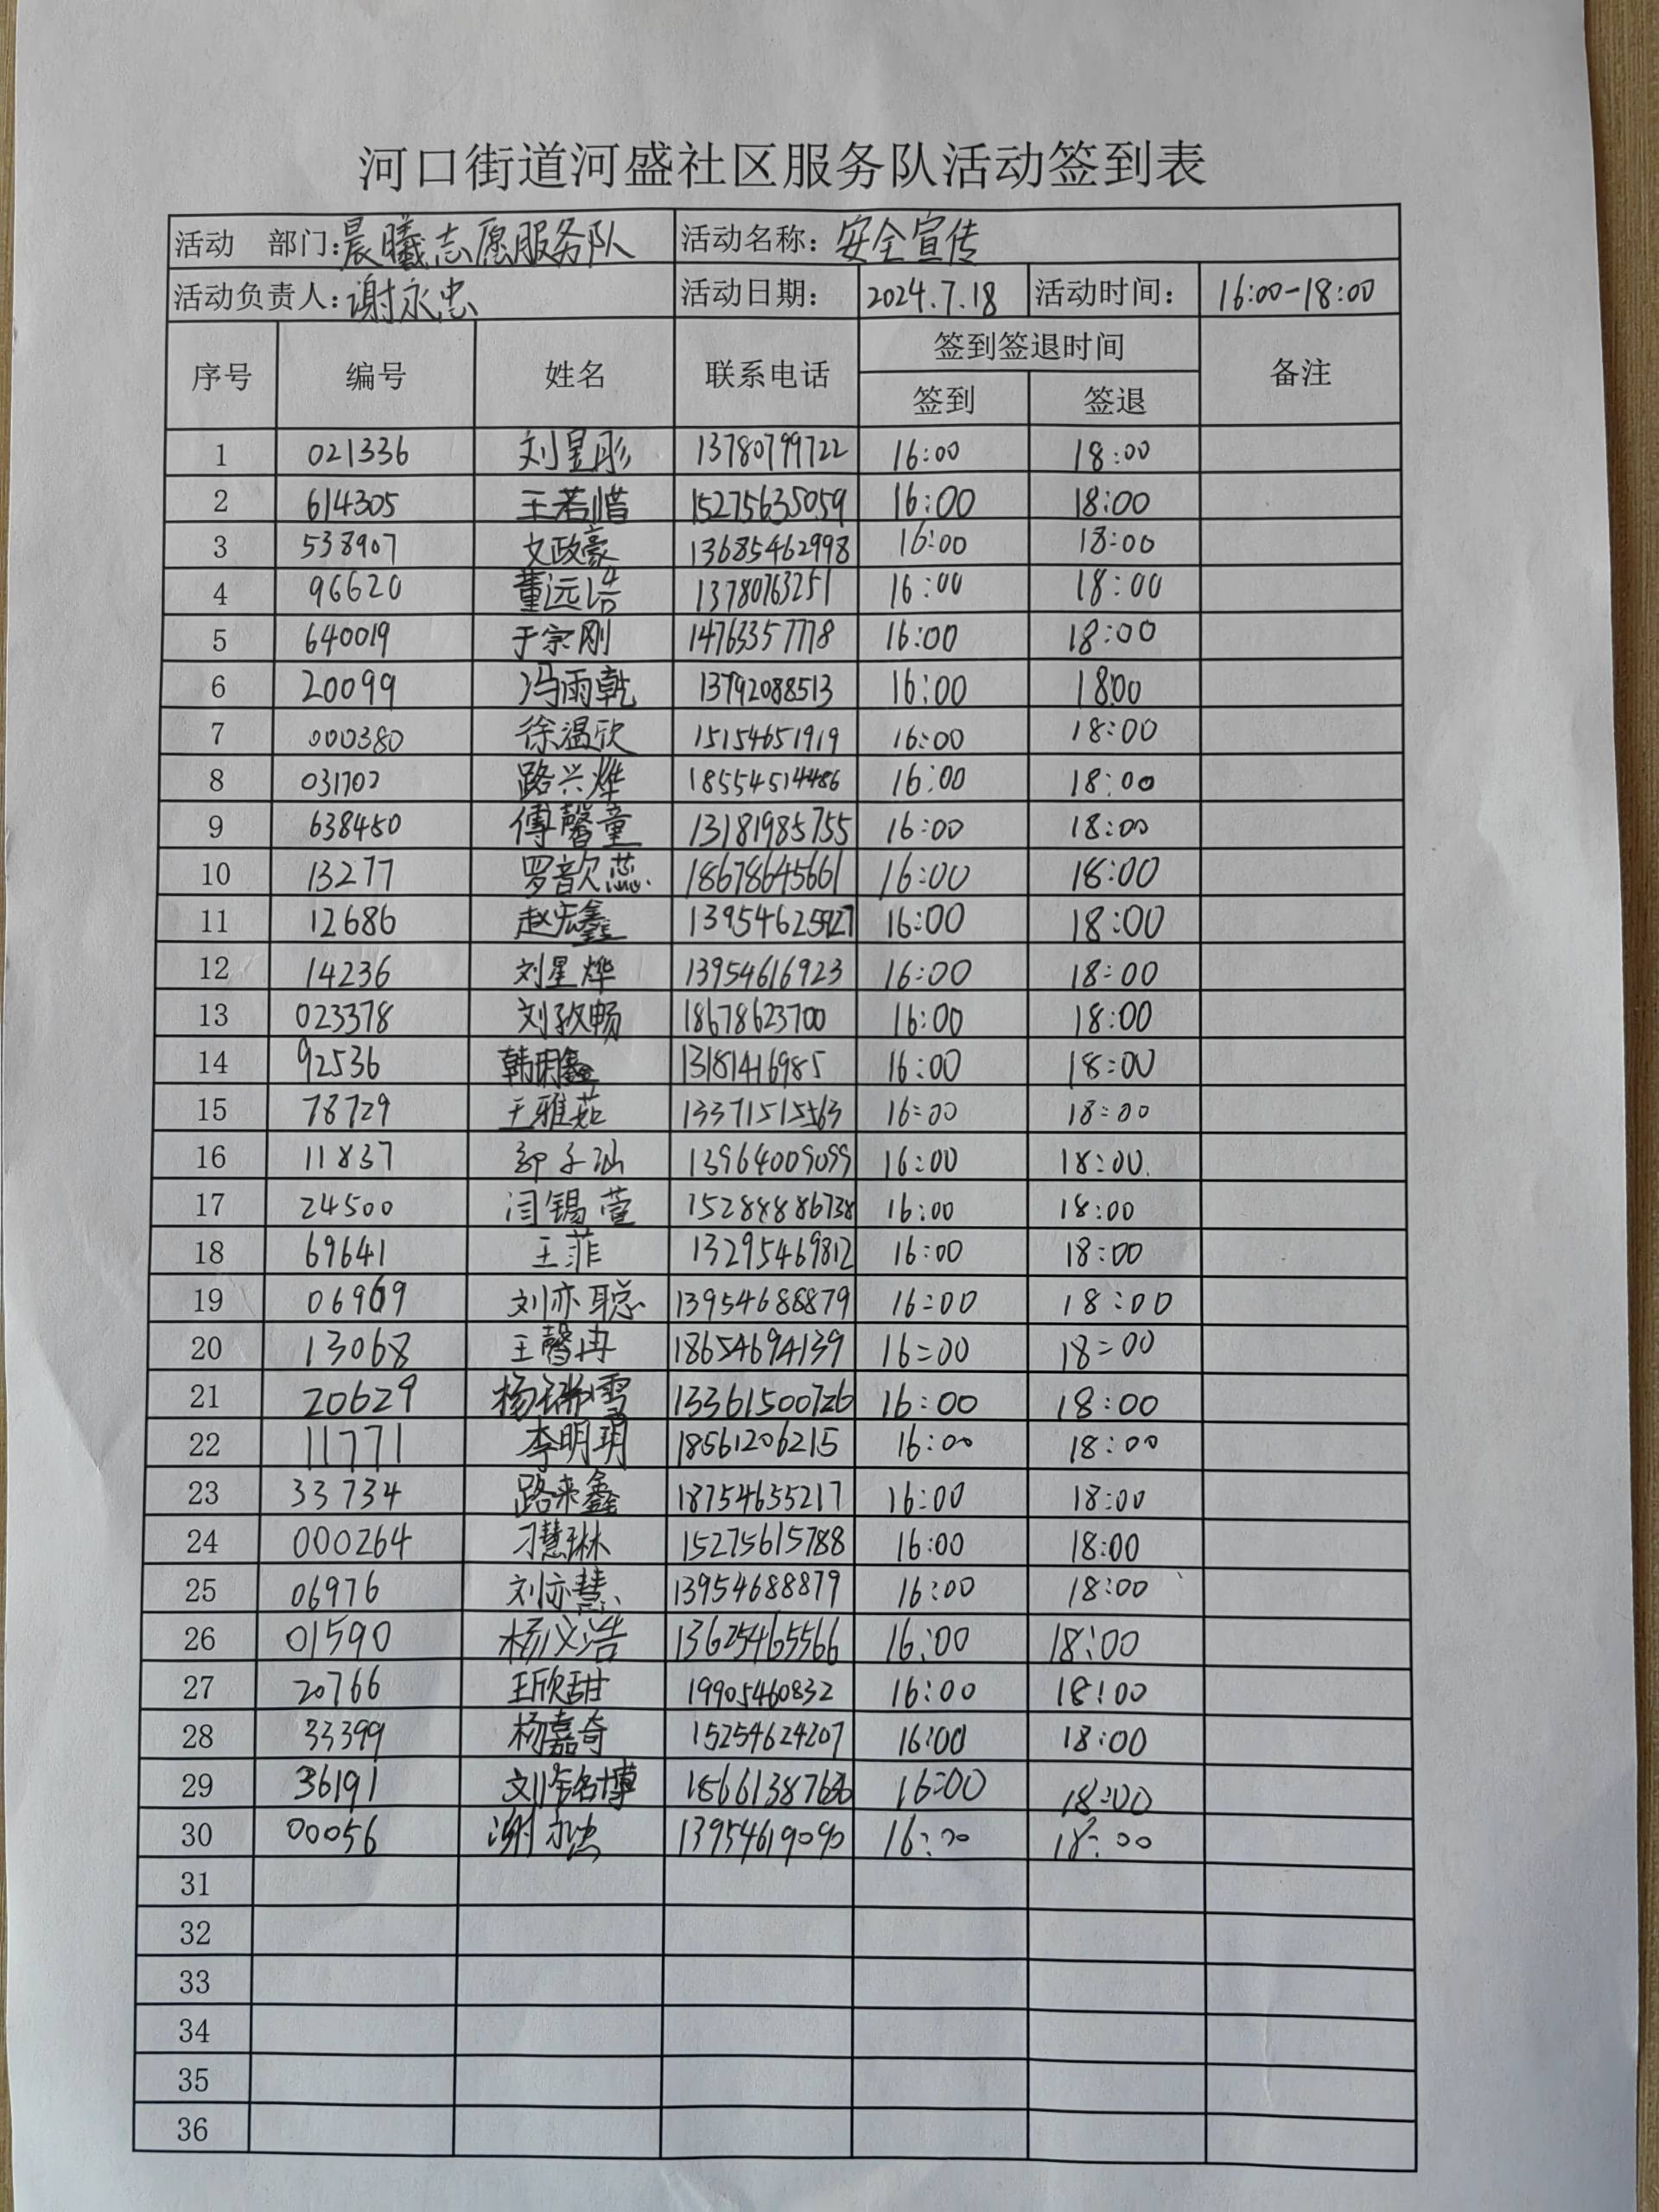 河口街道河盛社区服务队活动签到表
活动 部门：晨曦志愿服务队 活动名称：安全宣传
活动负责人：谢永忠 活动日期： 2024.7.18 活动时间： 16:00-18:00
序号 编号 姓名 联系电话 签到签退时间 备注
签到 签退
1 021336 刘昱彤 13780799722 16:00 18:00
2 614305 王若惜 15275635059 16:00 18:00
3 538907 文政豪 13685462998 16:00 18:00
4 96620 董远浩 13780763251 16:00 18:00
5 640019 于宗刚 14763357778 16:00 18:00
6 20099 冯雨乾 13792088513 16:00 18:00
7 000380 徐温欣 15154651919 16:00 18:00
8 031702 路兴烨 18554514486 16:00 18:00
9 638450 傅馨童 13181985755 16:00 18:00
10 13277 罗歆蕊 18678645661 16:00 18:00
11 12686 赵宏鑫 13954625927 16:00 18:00
12 14236 刘星烨 13954616923 16:00 18:00
13 023378 刘孜畅 18678623700 16:00 18:00
14 92536 韩明鑫 13181416985 16:00 18:00
15 78729 王雅茹 13371515563 16:00 18:00
16 11837 郭子汕 13964009099 16:00 18:00
17 24500 闫锡萱 15288886738 16:00 18:00
18 69641 王菲 13295469812 16:00 18:00
19 06969 刘亦聪 13954688879 16:00 18:00
20 13068 王馨冉 18654694139 16:00 18:00
21 20629 13361500726 16:00 18:00
22 11771 李明玥 18561206215 16:00 18:00
23 33734 路来鑫 18754655217 16:00 18:00
24 000264 刁慧琳 15275615788 16:00 18:00
25 06976 刘亦慧 13954688879 16:00 18:00
26 01590 杨义浩 13625465566 16:00 18:00
27 20766 王欣甜 19905460832 16:00 18:00
28 33399 杨嘉奇 15254624207 16:00 18:00
29 36191 16:00 18:00
30 00056 谢永忠 13954619090 16:00 18:00
31
32
33
34
35
36